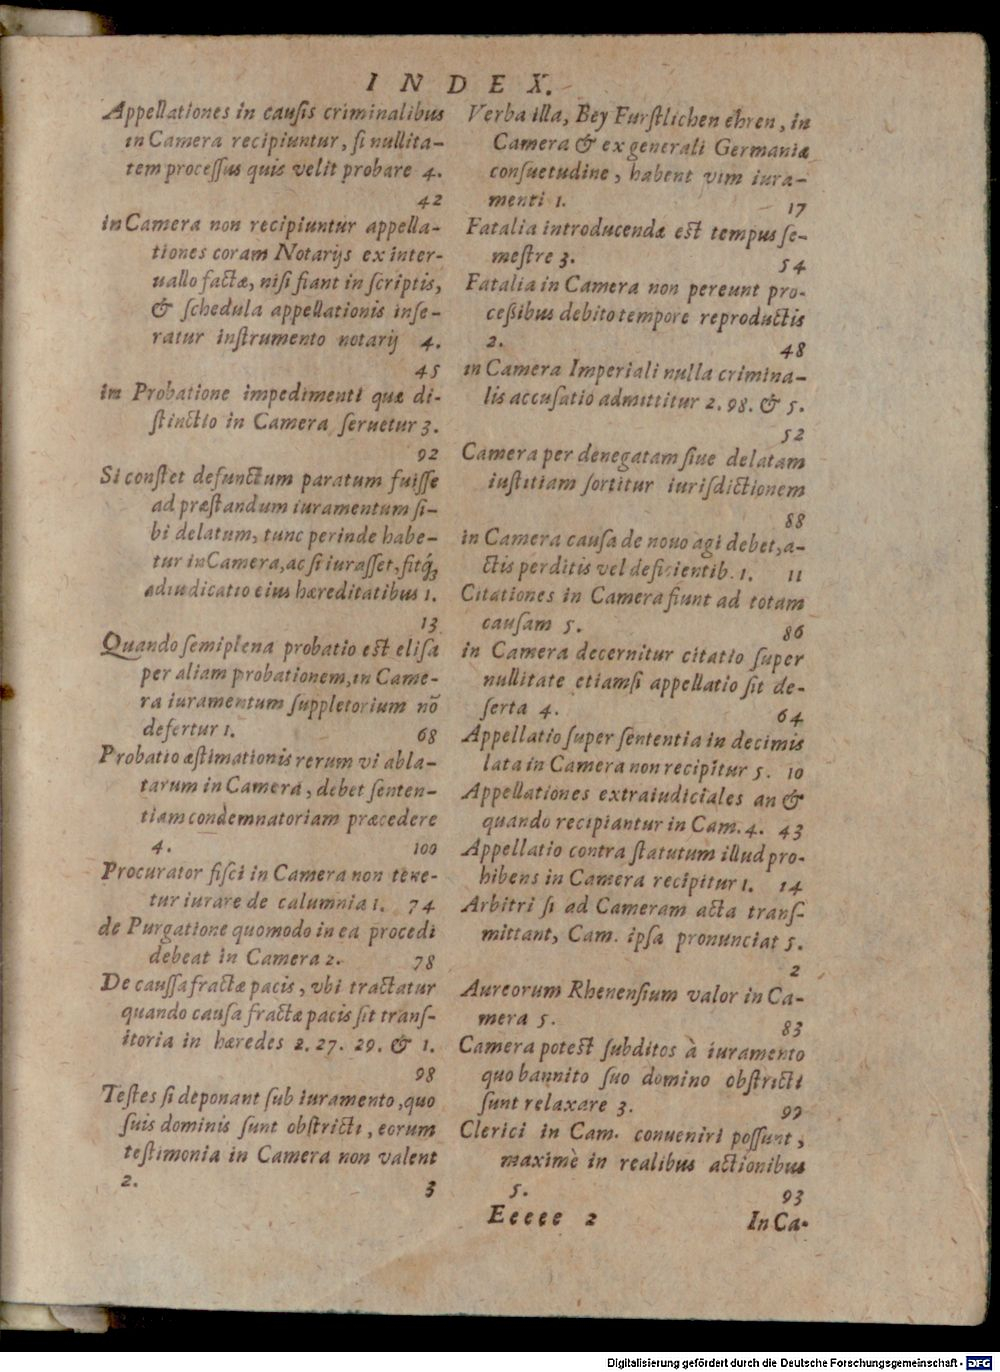 INDEX.
Appellationes in causis criminalibus
in Camera recipiuntur, si nullita-
tem processus quis velit probare 4.
42
in Camera non recipiuntur appella-
tiones coram Notarijs ex inter-
uallo factæ, nisi fiant in scriptis,
& schedula appellationis inse-
ratur instrumento notarij 4.
45
in Probatione impedimenti quæ di-
stinctio in Camera seruetur 3.
92
Si constet defunctum paratum fuisse
ad præstandum iuramentum si-
bi delatum, tunc perinde habe-
tur in Camera, ac si iurasset, sitq́;
adiudicatio eius hæreditatibus 1.
13
Quando semiplena probatio est elisa
per aliam probationem, in Came-
ra iuramentum suppletorium nõ
defertur 1. 68
Probatio æstimationis rerum vi abla-
tarum in Camera, debet senten-
tiam condemnatoriam præcedere
4. 100
Procurator fisci in Camera non tene-
tur iurare de calumnia 1. 74
de Purgatione quomodo in ea procedi
debeat in Camera 2. 78
De caussa fractæ pacis, vbi tractatur
quando causa fractæ pacis sit trans-
itoria in hæredes 2. 27. 29. & 1.
98
Testes si deponant sub iuramento, quo
suis dominis sunt obstricti, eorum
testimonia in Camera non valent
2. 3
Verba illa, Bey Furstlichen ehren, in
Camera & ex generali Germaniæ
consuetudine, habent vim iura-
menti 1. 17
Fatalia introducendæ est tempus se-
mestre 3. 54
Fatalia in Camera non pereunt pro-
cessibus debito tempore reproductis
2. 48
in Camera Imperiali nulla crimina-
lis accusatio admittitur 2. 98. & 5.
52
Camera per denegatam siue delatam
iustitiam sortitur iurisdictionem
88
in Camera causa de nouo agi debet, a-
ctis perditis vel deficientib. 1. 11
Citationes in Camera fiunt ad totam
causam 5. 86
in Camera decernitur citatio super
nullitate etiamsi appellatio sit de-
serta 4. 64
Appellatio super sententia in decimis
lata in Camera non recipitur 5. 10
Appellationes extraiudiciales an &
quando recipiantur in Cam. 4. 43
Appellatio contra statutum illud pro-
hibens in Camera recipitur 1. 14
Arbitri si ad Cameram acta trans-
mittant, Cam. ipsa pronunciat 5.
2
Aureorum Rhenensium valor in Ca-
mera 5. 83
Camera potest subditos à iuramento
quo bannito suo domino obstricti
sunt relaxare 3. 99
Clerici in Cam. conueniri possunt,
maximè in realibus actionibus
5. 93
Eeeee 2 In Ca-
Digitalisierung gefördert durch die Deutsche Forschungsgemeinschaft - DFG